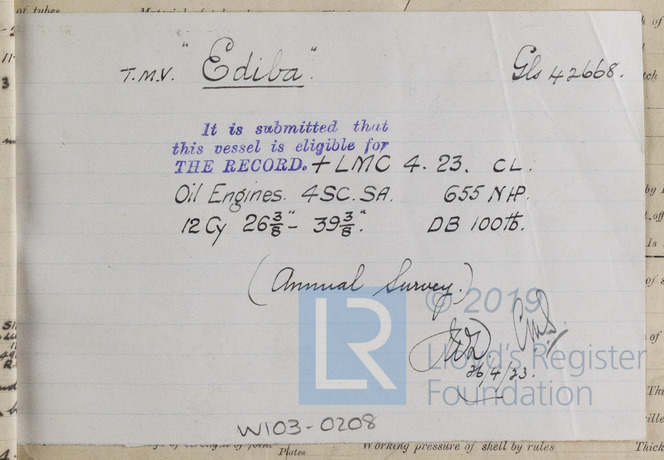 T.M.V. "Ediba". Gls 42668.
It is submitted that
this vessel is eligible for
THE RECORD. + LMC 4. 23. CL.
Oil Engines. 4SC. SA. 655 NHP.
12 Cy 26 3/8" - 39 3/8". DB 100 lb.
(Annual Survey.)
© 2019
LR
Lloyd's Register
Foundation
26/4/23.
W103-0208
Plates
Working pressure of shell by rules